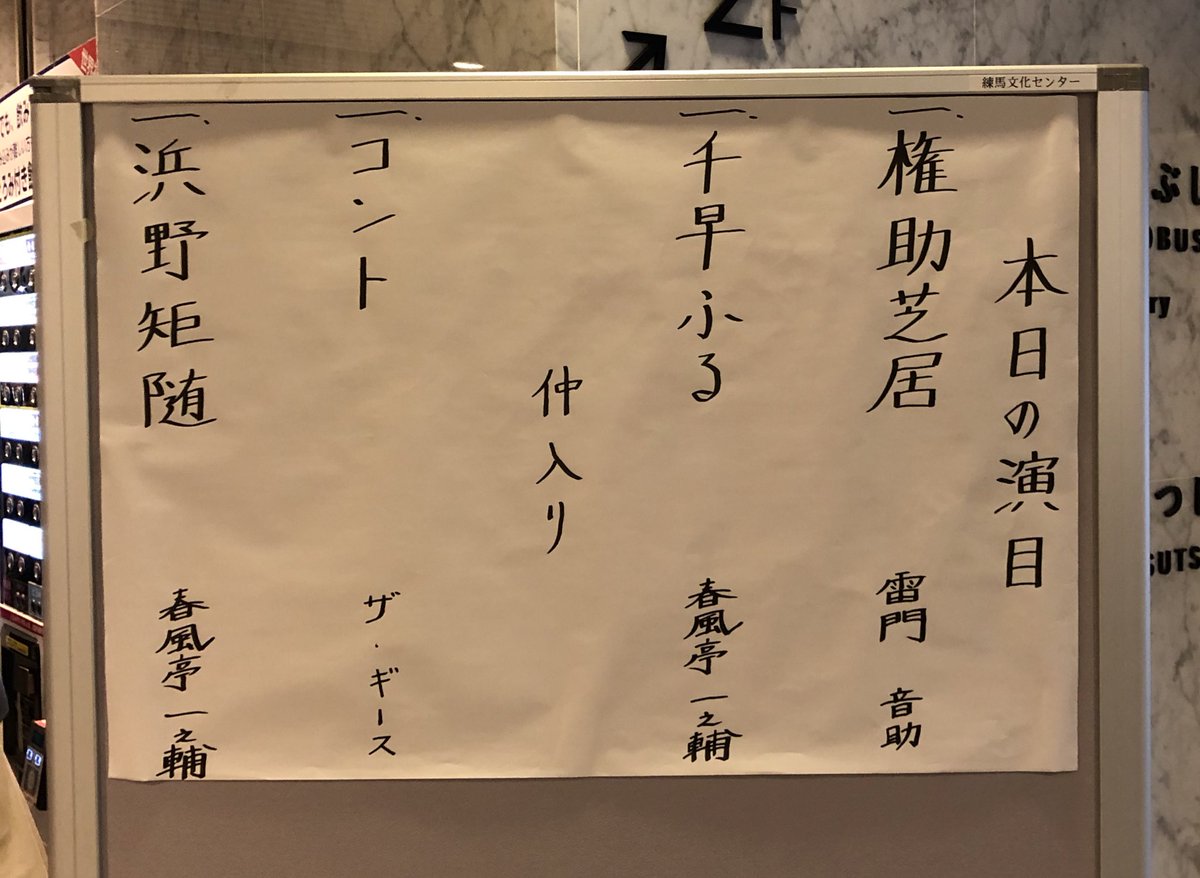 練馬文化センター
本日の演目
一、権助芝居 雷門 音助
一、千早ふる 春風亭 一之輔
仲入り
一、コント ザ・ギース
一、浜野矩随 春風亭 一之輔
2F